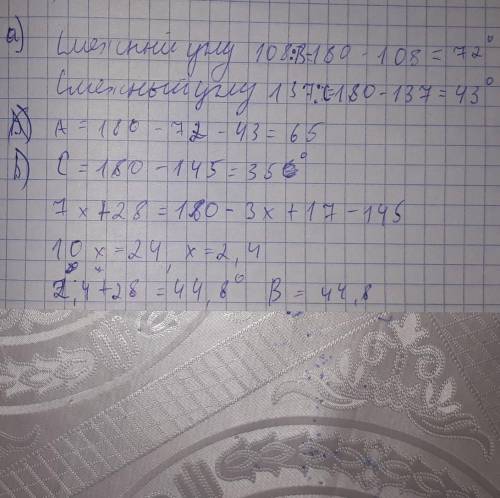 а) Смежный углу 108:B=180-108=72°
Смежный углу 137:C=180-137=43°
A=180-72-43=65
Б) C=180-145=35°
7x+28=180-3x+17-145
10x=24, x=2,4
2,4+28=44,8° B=44,8